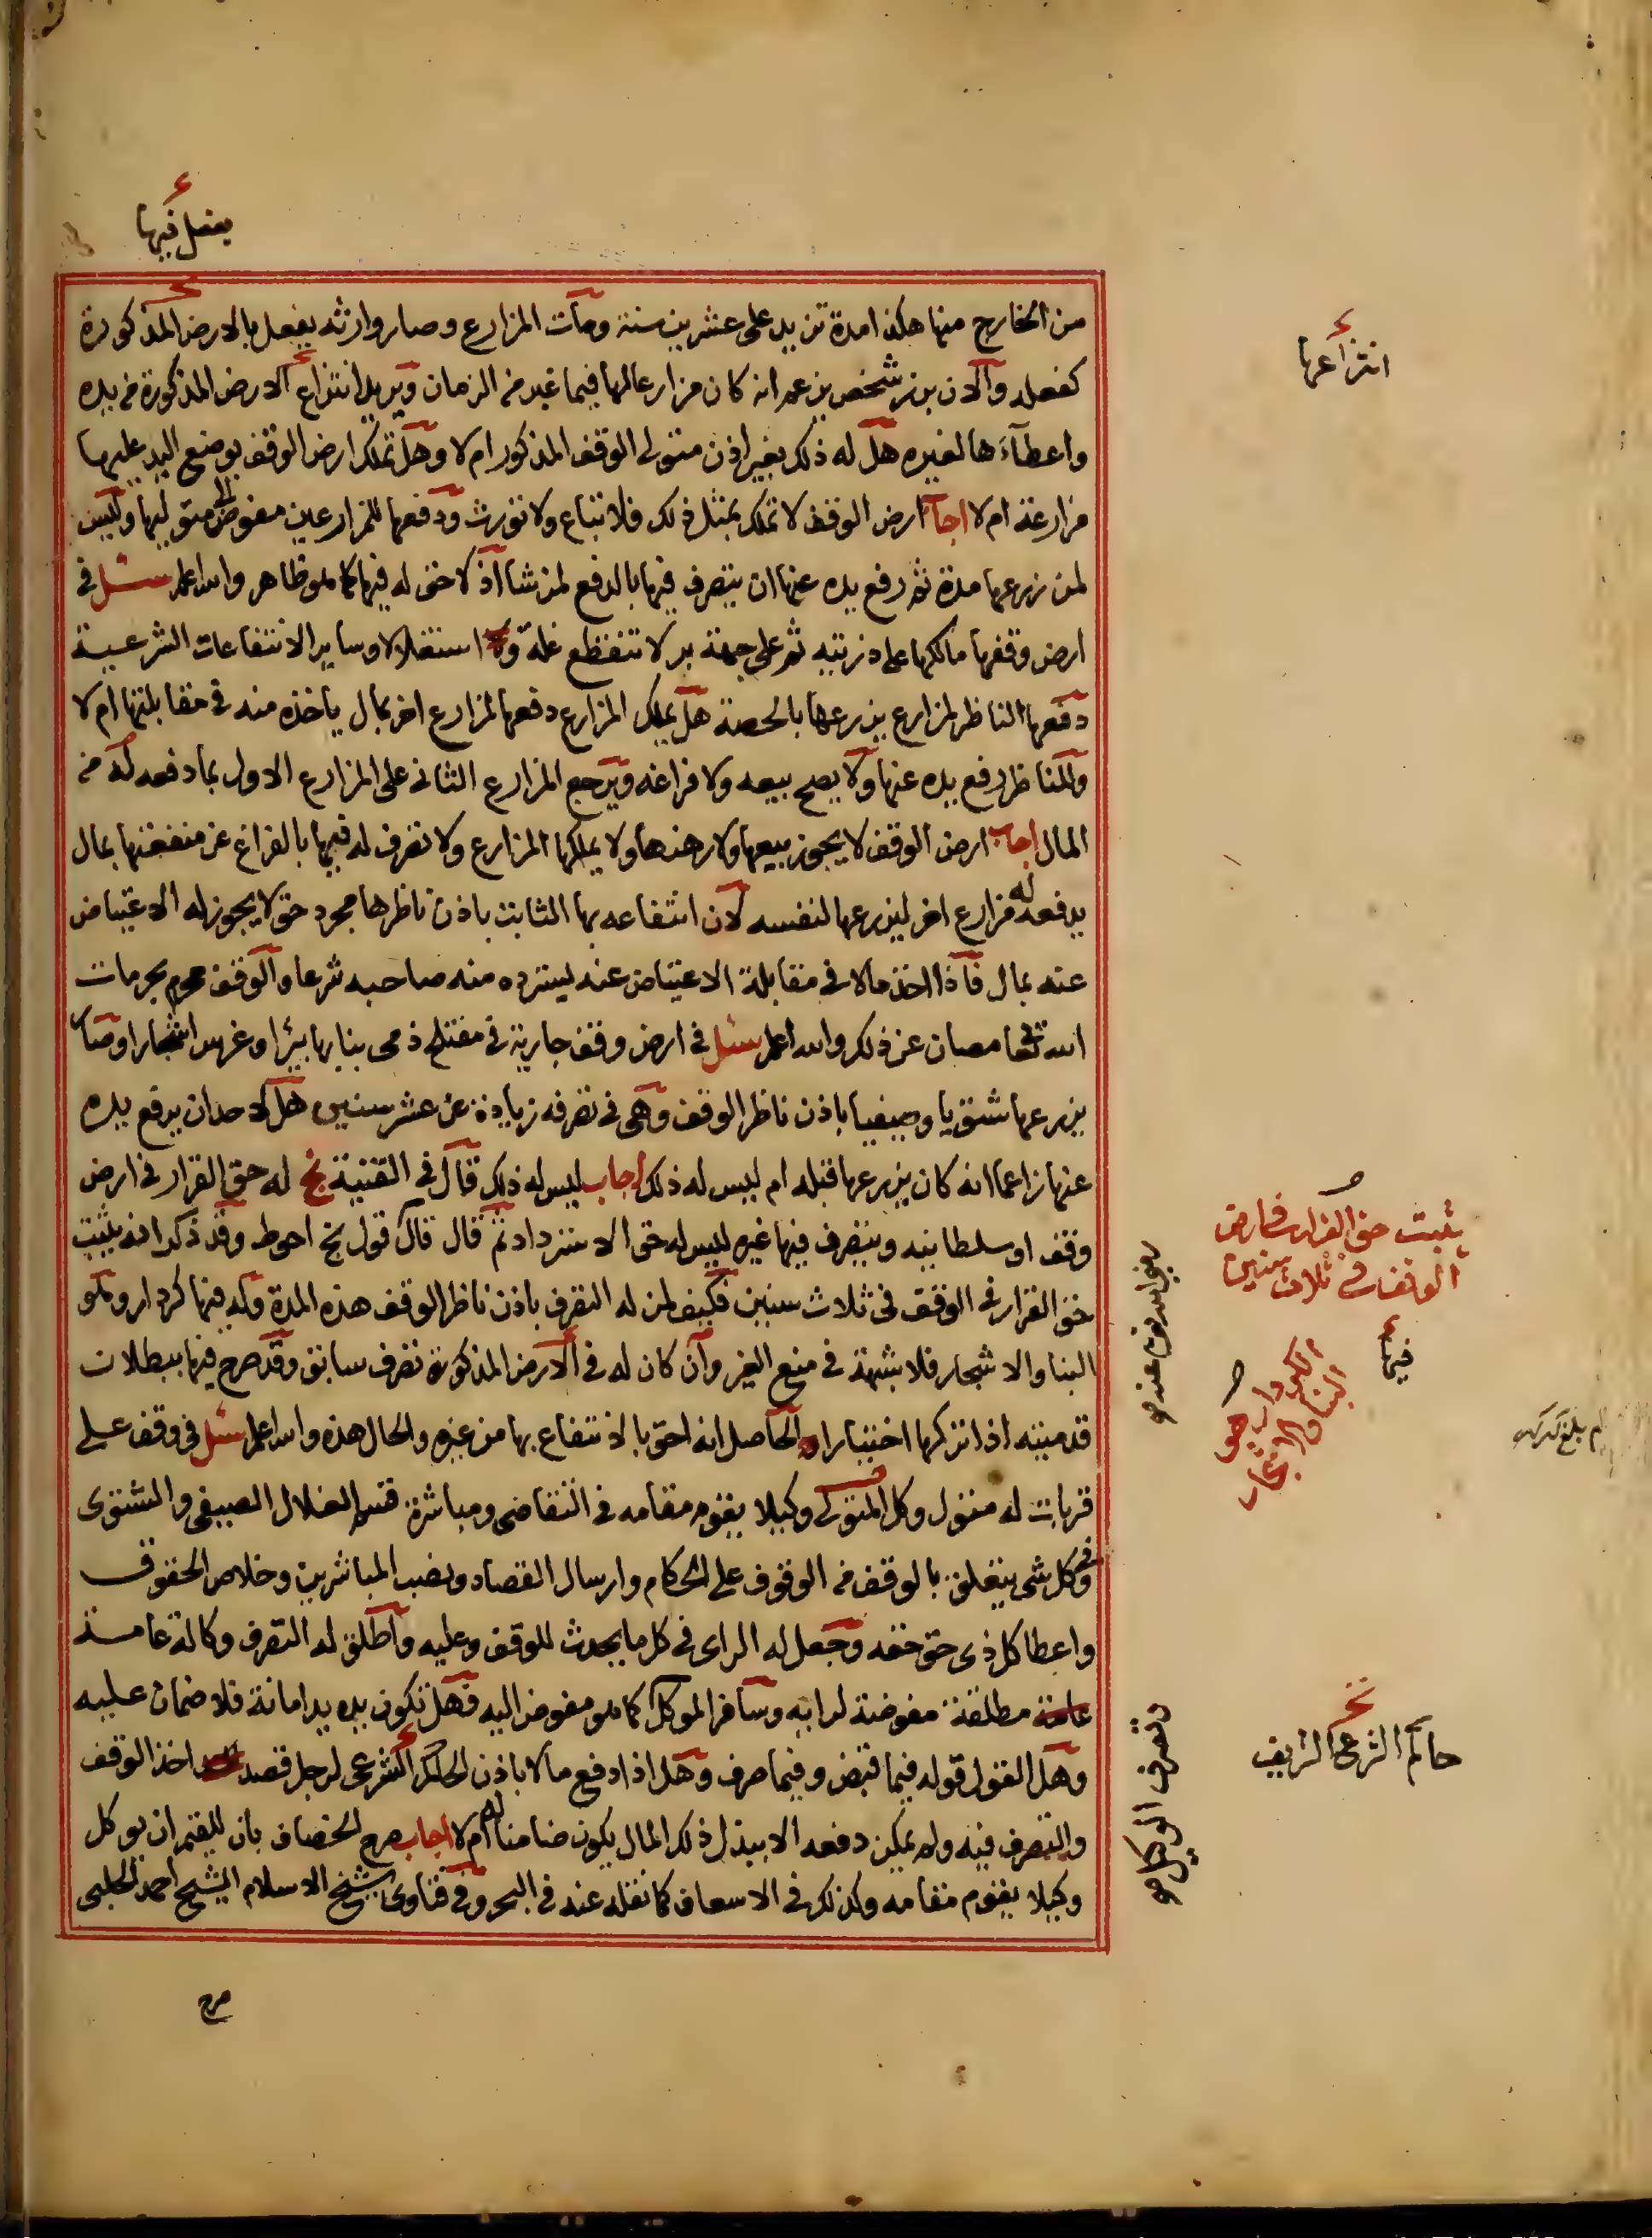 يفعل فيها
من الخارج منها هكذا مدة تزيد على عشرين سنة ومات المزارع وصار وارثه يفعل بالارض المذكورة
كفعله والان برز شخص يزعم انه كان مزارعا لها فيما غبر من الزمان ويريد انتزاع الارض المذكورة من يده
واعطآءها لغيره هل له ذلك بغير اذن متولى الوقف المذكور ام لا وهل تملك ارض الوقف بوضع اليد عليها
مزارعة ام لا اجاب ارض الوقف لا تملك بمثل ذلك فلا تباع ولا تورث ودفعها للمزارعين مفوض الى متوليها وليس
لمن زرعها مدة ثم رفع يده عنها ان يتصرف فيها بالدفع لمن شا اذ لا حق له فيها كما هو ظاهر والله اعلم سئل في
ارض وقفها مالكها على ذريته ثم على جهة بر لا تنقطع غلة واستغلالا وساير الانتفاعات الشرعية
دفعها الناظر لمزارع يزرعها بالحصة هل يملك المزارع دفعها لمزارع اخر بمال ياخذه منه في مقابلتها ام لا
وللناظر رفع يده عنها ولا يصح بيعه ولا فراغه ويرجع المزارع الثاني على المزارع الاول بما دفعه له من
المال اجاب ارض الوقف لا يجوز بيعها ولا رهنها ولا يملكها المزارع ولا تصرف له فيها بالفراغ عن منفعتها بمال
يدفعه له مزارع اخر ليزرعها لنفسه لان انتفاعه بها الثابت باذن ناظرها مجرد حق لا يجوز له الاعتياض
عنه بمال فاذا اخذ مالا في مقابلة الاعتياض عنه يسترده منه صاحبه شرعا والوقف محرم بحرمات
الله تعالى مصان عن ذلك والله اعلم سئل في ارض وقف جارية في مفتلح ذمى بنا بها بيرا وغرس اشجارا وصار
يزرعها شتويا وصيفيا باذن ناظر الوقف وهى في تصرفه زيادة عن عشر سنين هل لاحد ان يرفع يده
عنها زاعما انه كان يزرعها قبله ام ليس له ذلك اجاب ليس له ذلك قال في القنية نج له حق القرار في ارض
وقف او سلطانية ويتصرف فيها غيره ليس له حق الاسترداد ثم قال قال قول نج احوط وقد ذكر انه يثبت
حق القرار في الوقف في ثلاث سنين فكيف لمن له التصرف باذن ناظر الوقف هذه المدة وله فيها كردار وهو
البنا والاشجار فلا شبهة في منع الغير وان كان له في الارض المذكورة تصرف سابق وقد صرح فيها ببطلان
قدميته اذا تركها اختيارا والحاصل انه احق بالانتفاع بها من غيره والحال هذه والله اعلم سئل في وقف على
قربات له متول وكل المتولى وكيلا يقوم مقامه في التقاضى ومباشرة قسم الغلال الصيفى والشتوى
وفي كل شى يتعلق بالوقف من الوقوف على الحكام وارسال القصاد ونصب المباشرين وخلاص الحقوق
واعطا كل ذى حق حقه وجعل له الراى في كل ما يحدث للوقف وعليه واطلق له التصرف وكالة عامة
مطلقة مفوضة لرايه وسافر الموكل كما هو مفوض اليه فهل تكون يده يد امانة فلا ضمان عليه
وهل القول قوله فيما قبض وفيما صرف وهل اذا دفع مالا باذن الحاكم الشرعى لرجل قصد اخذ الوقف
والتصرف فيه ولم يمكن دفعه الا ببذل ذلك المال يكون ضامنا له ام لا اجاب صرح الخصاف بان للقيم ان يوكل
وكيلا يقوم مقامه وكذلك في الاسعاف كما نقله عنه في البحر وفي فتاوى شيخ الاسلام الشيخ احمد الحلبى
صرح
انتزاعها
يثبت حق القرار في ارض
الوقف في ثلاث سنين
فيها
الكردار هو
البنا والاشجار
حاكم الشرعى الشريف
تصرف الوكيل